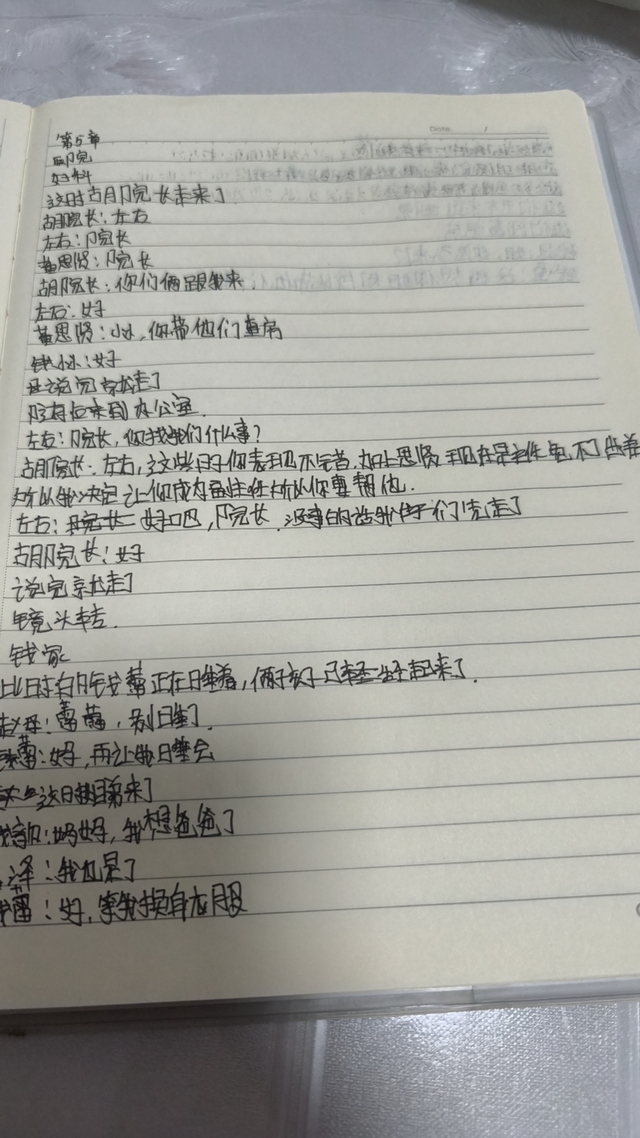 第5章
医院
妇科
这时胡院长走来了
胡院长：左右
左右：院长
黄思贤：院长
胡院长：你们俩跟我来.
左右：好
黄思贤：小小，你带他们查房
钱小小：好
说完就走了
院长来到办公室.
左右：院长，你找我们什么事？
胡院长：左右，这些日子你表现不错，加上思贤现在是主任
所以我决定让你成为副主任所以你要帮他.
左右：好吧，院长，没事的话我们先走了
胡院长：好
说完就走了
镜头转.
钱家
此时钱蕾正在睡着，俩孩子已经起来了.
赵母：蕾蕾，别睡了.
蕾：好，再让我睡会
这时来了
：妈妈，我想爸爸了
泽：我也是了
蕾：好，等我换身衣服